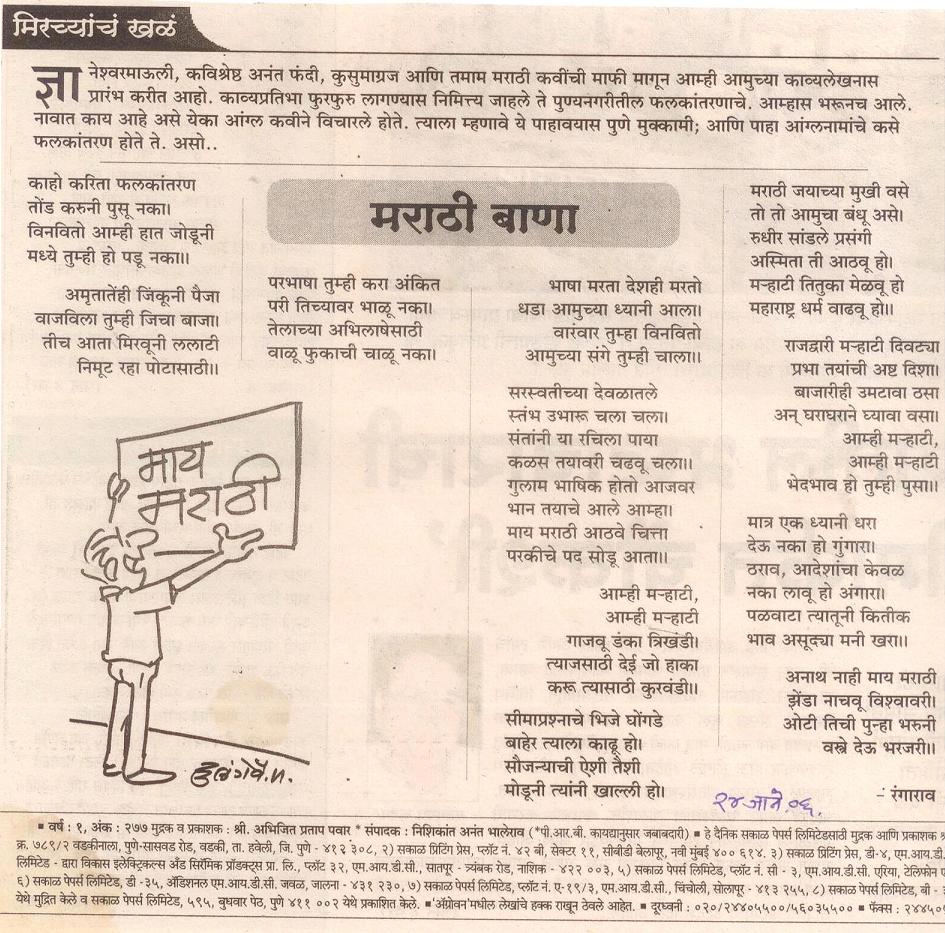 मिरच्यांचं खळं
ज्ञानेश्वरमाऊली, कविश्रेष्ठ अनंत फंदी, कुसुमाग्रज आणि तमाम मराठी कवींची माफी मागून आम्ही आमुच्या काव्यलेखनास
प्रारंभ करीत आहो. काव्यप्रतिभा फुरफुरु लागण्यास निमित्त्य जाहले ते पुण्यनगरीतील फलकांतरणाचे. आम्हास भरूनच आले.
नावात काय आहे असे येका आंग्ल कवीने विचारले होते. त्याला म्हणावे ये पाहावयास पुणे मुक्कामी; आणि पाहा आंग्लनामांचे कसे
फलकांतरण होते ते. असो..
मराठी बाणा
काहो करिता फलकांतरण
तोंड करुनी पुसू नका।
विनवितो आम्ही हात जोडूनी
मध्ये तुम्ही हो पडू नका॥
अमृतातेंही जिंकूनी पैजा
वाजविला तुम्ही जिचा बाजा।
तीच आता मिरवूनी ललाटी
निमूट रहा पोटासाठी॥
माय
मराठी
परभाषा तुम्ही करा अंकित
परी तिच्यावर भाळू नका।
तेलाच्या अभिलाषेसाठी
वाळू फुकाची चाळू नका॥
भाषा मरता देशही मरतो
धडा आमुच्या ध्यानी आला।
वारंवार तुम्हा विनवितो
आमुच्या संगे तुम्ही चाला॥
सरस्वतीच्या देवळातले
स्तंभ उभारू चला चला।
संतांनी या रचिला पाया
कळस तयावरी चढवू चला॥
गुलाम भाषिक होतो आजवर
भान तयाचे आले आम्हा।
माय मराठी आठवे चित्ता
परकीचे पद सोडू आता॥
आम्ही मऱ्हाटी,
आम्ही मऱ्हाटी
गाजवू डंका त्रिखंडी।
त्याजसाठी देई जो हाका
करू त्यासाठी कुरवंडी॥
सीमाप्रश्नाचे भिजे घोंगडे
बाहेर त्याला काढू हो।
सौजन्याची ऐशी तैशी
मोडूनी त्यांनी खाल्ली हो।
मराठी जयाच्या मुखी वसे
तो तो आमुचा बंधू असे।
रुधीर सांडले प्रसंगी
अस्मिता ती आठवू हो।
मऱ्हाटी तितुका मेळवू हो
महाराष्ट्र धर्म वाढवू हो॥
राजद्वारी मऱ्हाटी दिवट्या
प्रभा तयांची अष्ट दिशा।
बाजारीही उमटावा ठसा
अन् घराघराने घ्यावा वसा॥
आम्ही मऱ्हाटी,
आम्ही मऱ्हाटी
भेदभाव हो तुम्ही पुसा॥
मात्र एक ध्यानी धरा
देऊ नका हो गुंगारा।
ठराव, आदेशांचा केवळ
नका लावू हो अंगारा।
पळवाटा त्यातूनी कितीक
भाव असूद्या मनी खरा॥
अनाथ नाही माय मराठी
झेंडा नाचवू विश्वावरी।
ओटी तिची पुन्हा भरुनी
वस्त्रे देऊ भरजरी॥
- रंगाराव
२४ जाने.०६
■ वर्ष : १, अंक : २७७ मुद्रक व प्रकाशक : श्री. अभिजित प्रताप पवार * संपादक : निशिकांत अनंत भालेराव (*पी.आर.बी. कायद्यानुसार जबाबदारी) ■ हे दैनिक सकाळ पेपर्स लिमिटेडसाठी मुद्रक आणि प्रकाशक
क्र. ७८९/२ वडकीनाला, पुणे-सासवड रोड, वडकी, ता. हवेली, जि. पुणे - ४१२ ३०८, २) सकाळ प्रिटिंग प्रेस, प्लॉट नं. ४२ बी, सेक्टर ११, सीबीडी बेलापूर, नवी मुंबई ४०० ६१४. ३) सकाळ प्रिटिंग प्रेस, डी-४, एम.आय.डी.
लिमिटेड - द्वारा विकास इलेक्ट्रिकल्स अँड सिरॅमिक प्रॉडक्ट्स प्रा. लि., प्लॉट ३२, एम.आय.डी.सी., सातपूर - त्र्यंबक रोड, नाशिक - ४२२ ००३, ५) सकाळ पेपर्स लिमिटेड, प्लॉट नं. सी - ३, एम.आय.डी.सी. एरिया, टेलिफोन
६) सकाळ पेपर्स लिमिटेड, डी -३५, ॲडिशनल एम.आय.डी.सी. जवळ, जालना - ४३१ २३०, ७) सकाळ पेपर्स लिमिटेड, प्लॉट नं. ए-१९/३, एम.आय.डी.सी., चिंचोली, सोलापूर - ४१३ २५५, ८) सकाळ पेपर्स लिमिटेड, बी -
येथे मुद्रित केले व सकाळ पेपर्स लिमिटेड, ५९५, बुधवार पेठ, पुणे ४११ ००२ येथे प्रकाशित केले. ■'ॲग्रोवन'मधील लेखांचे हक्क राखून ठेवले आहेत. ■ दूरध्वनी : ०२०/२४४०५५००/५६०३५५०० ■ फॅक्स : २४४५०